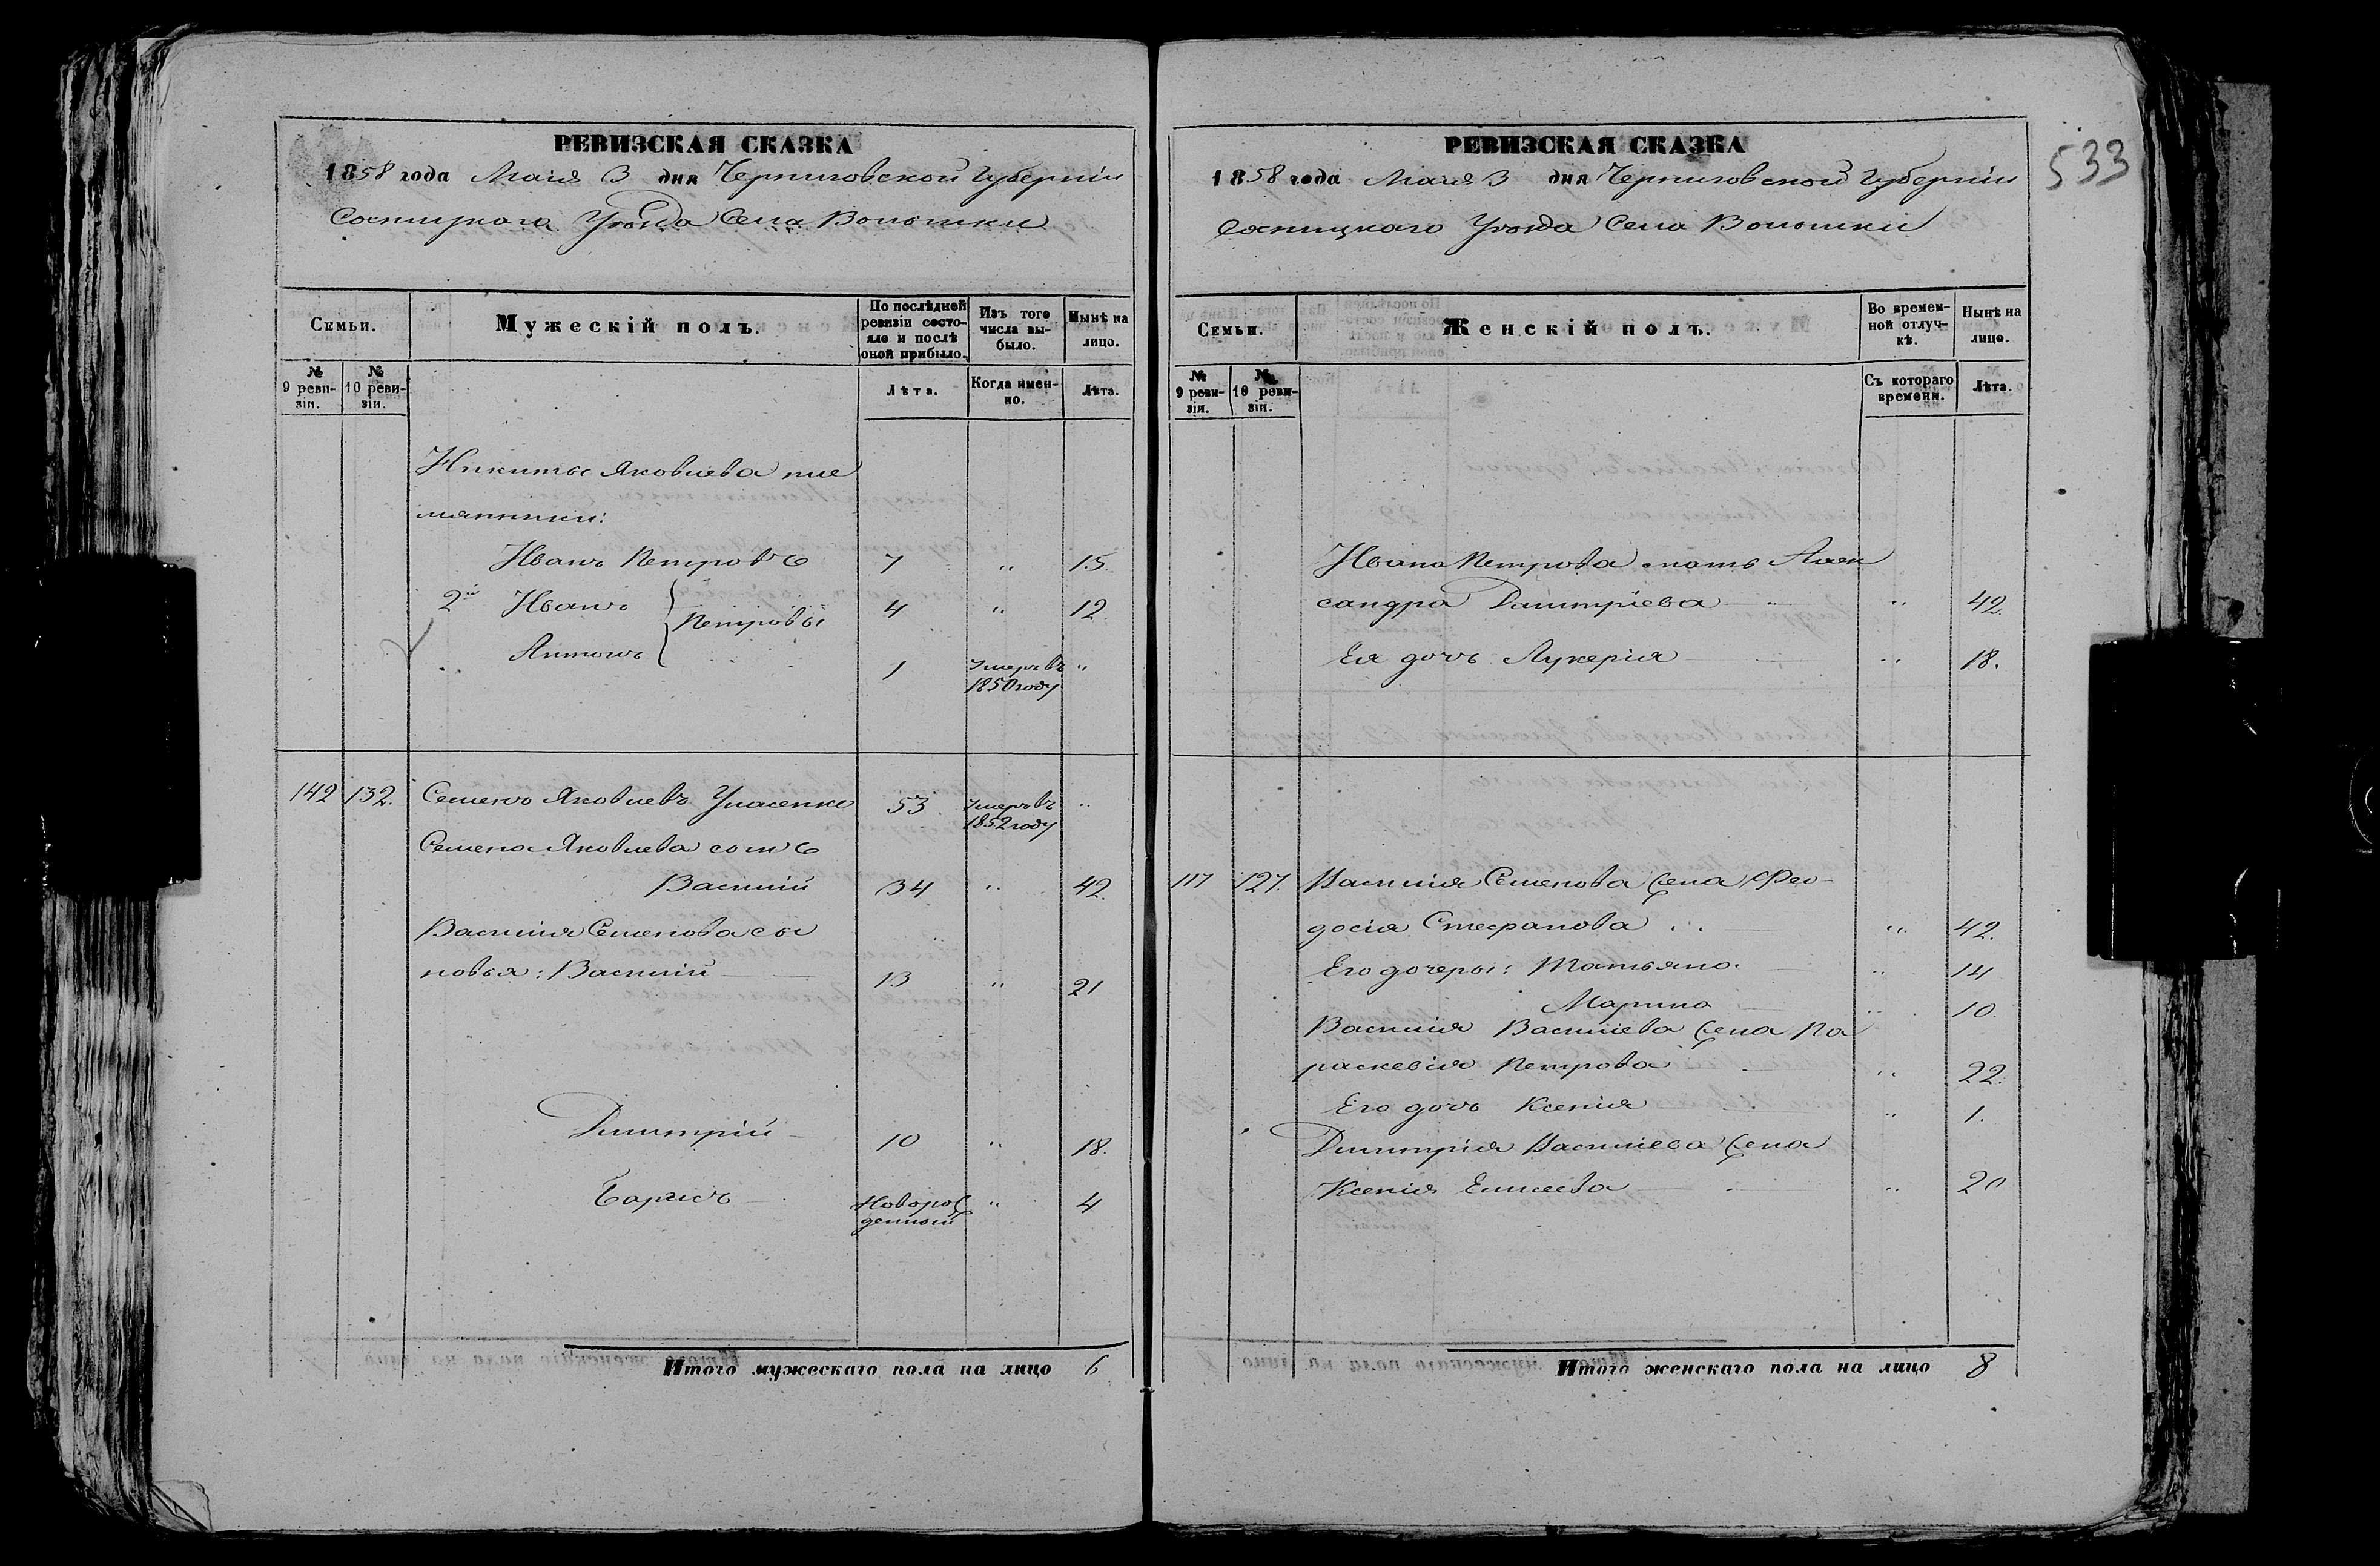 РЕВИЗСКАЯ СКАЗКА
1858 года Маія 3 дня Черниговской Губерніи
Сосницкаго Уѣзда Села Волошки
Семьи.
Мужескій полъ.
По послѣдней ревизіи состояло и послѣ оной прибыло.
Изъ того числа выбыло.
Нынѣ на лицо.
№ 9 ревизіи.
№ 10 ревизіи.
Лѣта.
Когда именно.
Лѣта.
Никиты Яковлева пле
мянники:
Иванъ Петровъ 7 " 15.
2й Иванъ Петровы 4 " 12.
Антонъ 1 Умеръ въ "
1850 году
142 132. Семенъ Яковлевъ 53 Умеръ въ "
1852 году
Семена Яковлева сынъ
Василій 34 " 42.
Василія Семенова сы
новья: Василій 13 " 21
Дмитрій 10 " 18.
Барисъ Новорож " 4
денный
Итого мужескаго пола на лицо 6
533
РЕВИЗСКАЯ СКАЗКА
1858 года Маія 3 дня Черниговской Губерніи
Сосницкаго Уѣзда Села Волошки
Семьи.
Женскій полъ.
Во временной отлучкѣ.
Нынѣ на лицо.
№ 9 ревизіи.
№ 10 ревизіи.
Съ котораго времени.
Лѣта.
Ивана Петрова мать Алек
сандра Дмитріева " 42.
Ея дочь Лукерія " 18.
127. Василія Семенова жена Фео-
досія Стефанова " 42.
Его дочеры: Татьяна " 14
Марина " 10.
Василія Васильева жена Па
раскевія Петрова " 22.
Его дочь Ксенія " 1.
Дмитрія Васильева жена
Ксенія Елисеева " 20
Итого женскаго пола на лицо 8